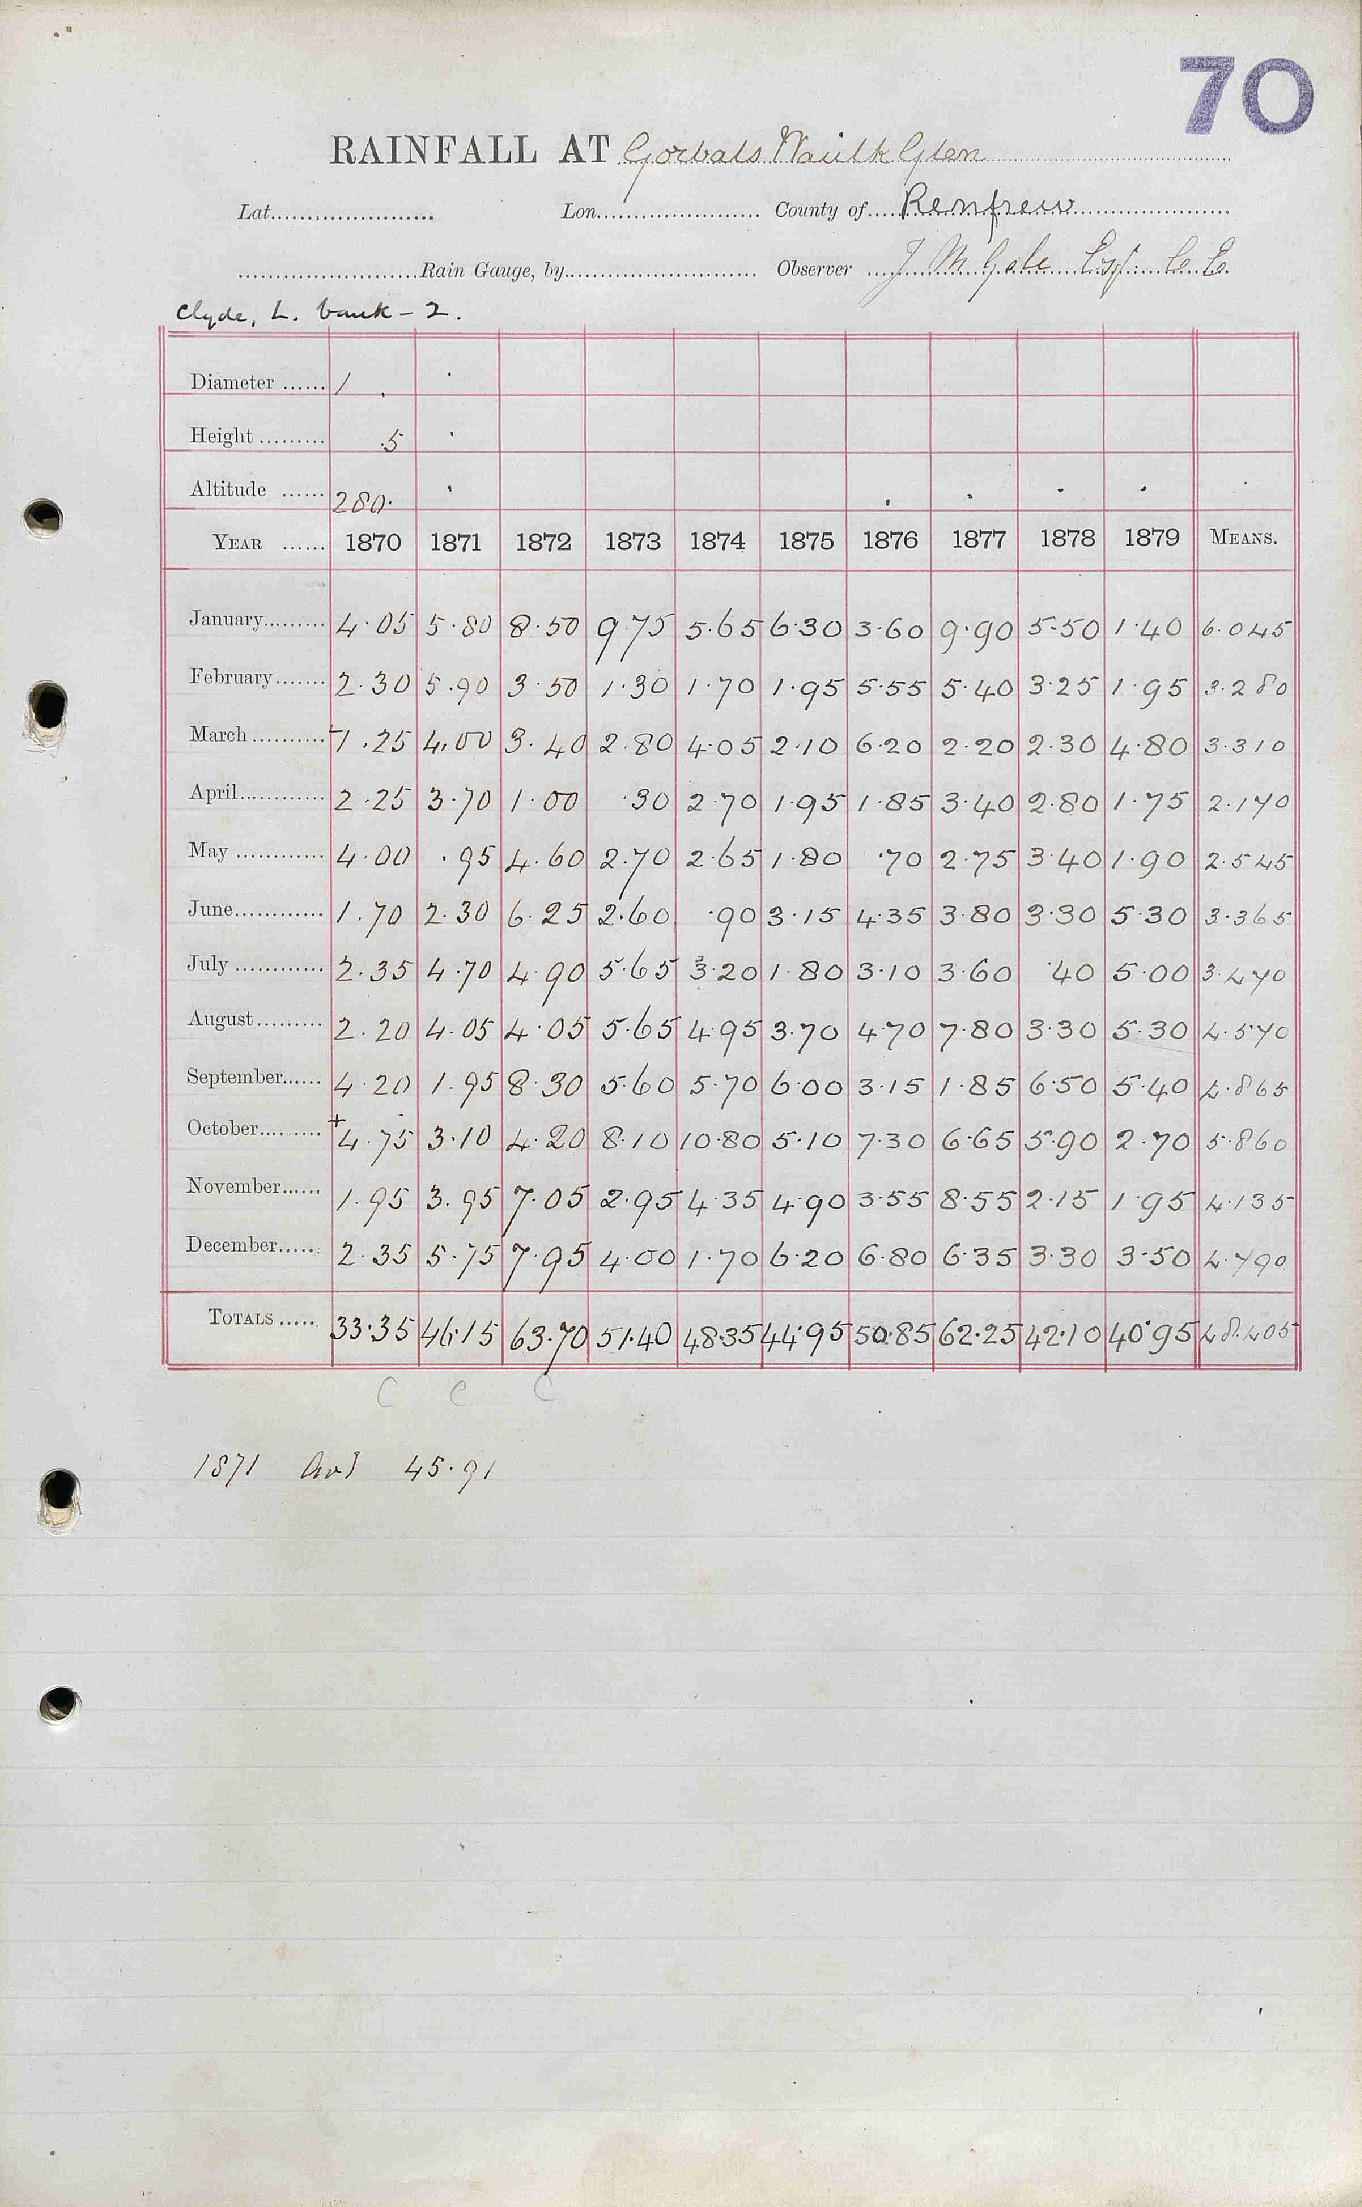 70
RAINFALL AT Gorbals Waulk Glen
Lat........................ Lon........................ County of.....Renfrew
........................Rain Gauge, by............................ Observer ....J M Gale Esq C.E.
Clyde, L. bank - 2.
Diameter ...... 1
Height ......... .5
Altitude ...... 280.
YEAR ...... 1870 1871 1872 1873 1874 1875 1876 1877 1878 1879 MEANS.
January......... 4.05 5.80 8.50 9.75 5.65 6.30 3.60 9.90 5.50 1.40 6.045
February....... 2.30 5.90 3.50 1.30 1.70 1.95 5.55 5.40 3.25 1.95 3.280
March........... +1.25 4.00 3.40 2.80 4.05 2.10 6.20 2.20 2.30 4.80 3.310
April............ 2.25 3.70 1.00 .30 2.70 1.95 1.85 3.40 2.80 1.75 2.170
May ............ 4.00 .95 4.60 2.70 2.65 1.80 .70 2.75 3.40 1.90 2.545
June............ 1.70 2.30 6.25 2.60 .90 3.15 4.35 3.80 3.30 5.30 3.365
July ............ 2.35 4.70 4.90 5.65 3.20 1.80 3.10 3.60 .40 5.00 3.470
August......... 2.20 4.05 4.05 5.65 4.95 3.70 4.70 7.80 3.30 5.30 4.570
September...... 4.20 1.95 8.30 5.60 5.70 6.00 3.15 1.85 6.50 5.40 4.865
October......... +4.75 3.10 4.20 8.10 10.80 5.10 7.30 6.65 5.90 2.70 5.860
November...... 1.95 3.95 7.05 2.95 4.35 4.90 3.55 8.55 2.15 1.95 4.135
December...... 2.35 5.75 7.95 4.00 1.70 6.20 6.80 6.35 3.30 3.50 4.790
TOTALS ..... 33.35 46.15 63.70 51.40 48.35 44.95 50.85 62.25 42.10 40.95 48.405
C C C
1871 45.91